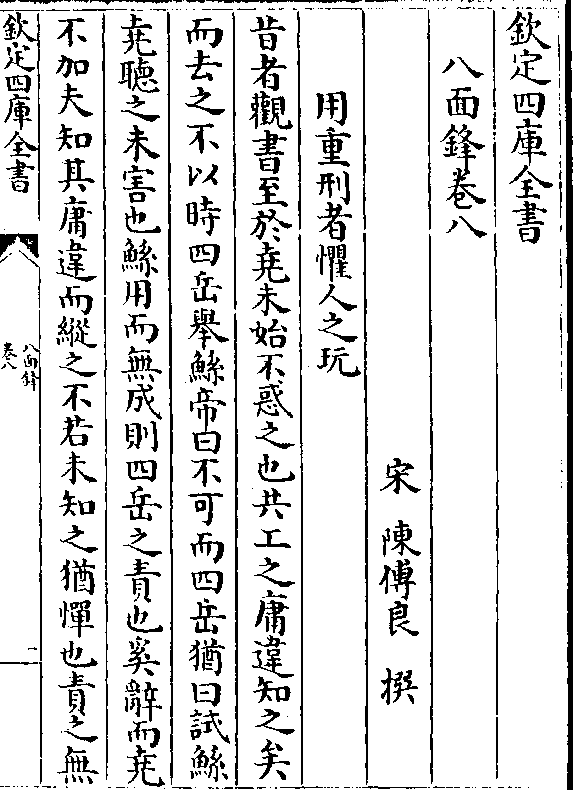 欽定四庫全書
八面鋒卷八
宋 陳傅良 撰
用重刑者懼人之玩
昔者觀書至於堯未始不惑之也共工之庸違知之矣
而去之不以時四岳舉鯀帝曰不可而四岳猶曰試鯀
堯聽之未害也鯀用而無成則四岳之責也奚辭而堯
不加夫知其庸違而縱之不若未知之猶憚也責之無
欽定四庫全書
八面鋒
卷八
一